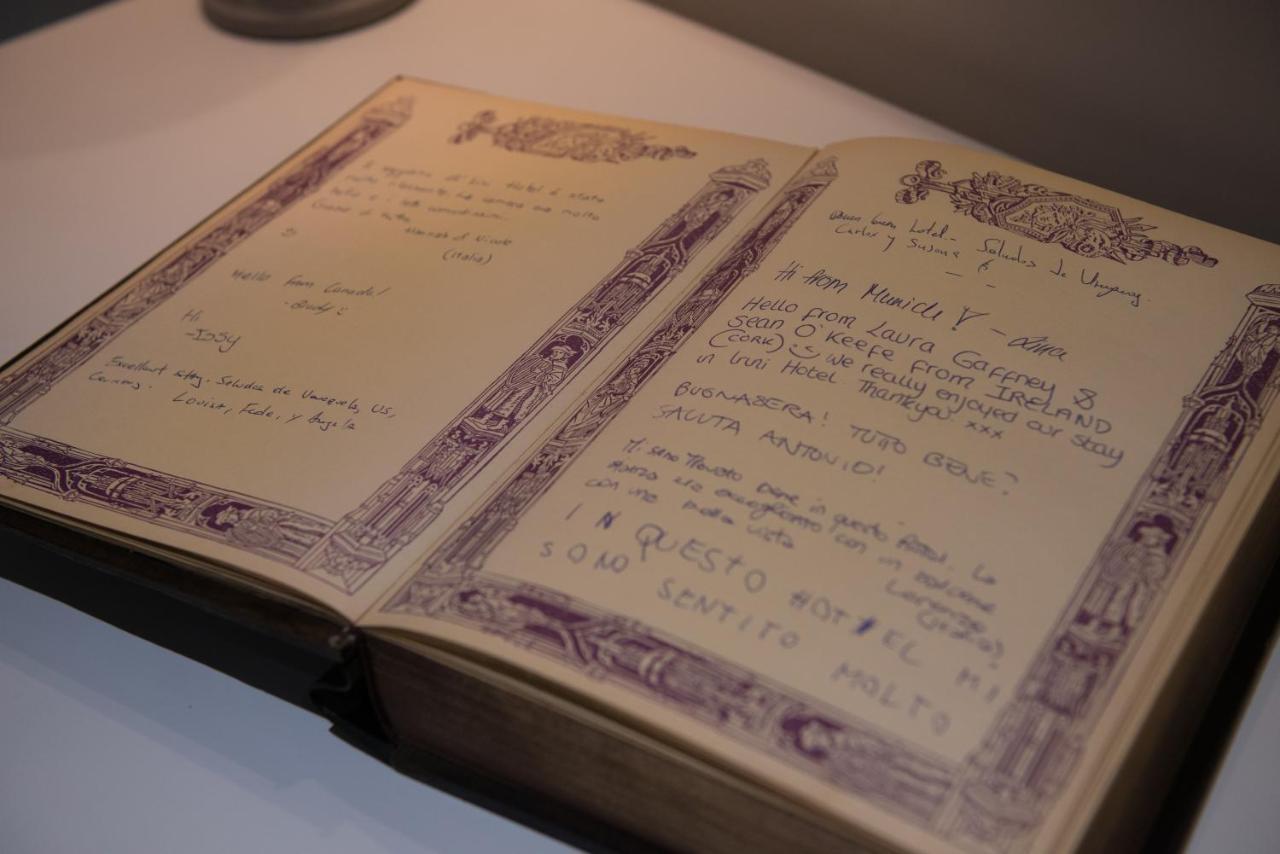 Il soggiorno di Hotel è stato
molto
bella e i letti comodissimi.
Grazie di tutto
Hannah & Nicole
(Italia)
:)
Hello from Canada!
Hi
-Issy
Excellent stay. Saludos de Venezuela, US,
Germany.
Louise, Fede, y Angela
buen hotel - Saludos de Uruguay.
Carlos y Susana
Hi from Munich! - Lina
Hello from Laura Gaffney &
Sean O'Keefe from IRELAND
(CORK) :) we really enjoyed our stay
in Hotel. Thankyou! xxx
BUONASERA! TUTTO BENE?
SALUTA ANTONIO!
Mi sono trovato bene in questo Hotel. La
stanza era accogliente con un balcone
con una bella vista
Lorenzo
(ITALIA)
IN QUESTO HOTEL MI
SONO SENTITO MOLTO